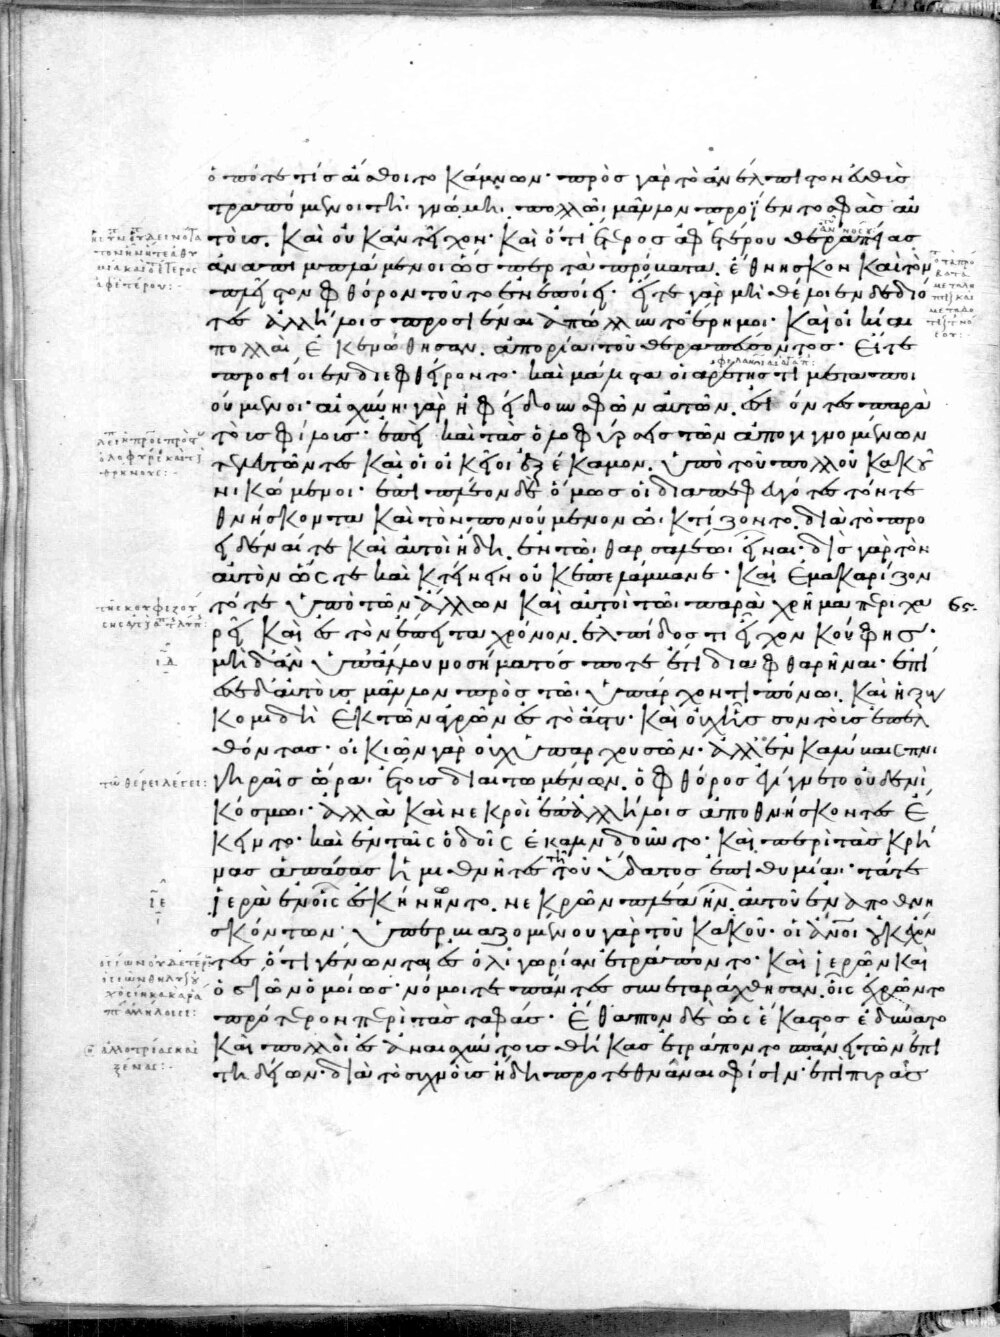 ὁπότε τίς αἴσθοιτο κάμνων· πρὸς γὰρ τὸ ἀνέλπιστον εὐθὺς
τραπόμενοι τῆι γνώμηι πολλῶι μᾶλλον προΐεντο σφᾶς αὐ
τούς. Καὶ οὐκ ἀντεῖχον· Καὶ ὅτι ἕτερος ἀφ ἑτέρου θεραπείας
ἀναπιμπλάμενοι ὥσπερ τὰ πρόβατα ἔθνησκον Καὶ τὸν
πλεῖστον φθόρον τοῦτο ἐνεποίει· εἴτε γὰρ μὴ θέλοιεν δεδιό
τες ἀλλήλοις προσιέναι ἀπώλλυντο ἔρημοι· Καὶ οἰκίαι
πολλαὶ ἐκενώθησαν. ἀπορίαι τοῦ θεραπεύσοντος· Εἴτε
προσίοιεν διεφθείροντο· καὶ μάλιστα οἱ ἀρετῆς τι μεταποι
ούμενοι· αἰσχύνηι γὰρ ἠφείδουν σφῶν αὐτῶν. ἐσιόντες παρὰ
τοὺς φίλους· ἐπεὶ καὶ τὰς ὀλοφύρσεις τῶν ἀπογιγνομένων
τελευτῶντες Καὶ οἱ οἰκεῖοι ἐξέκαμον. ὑπὸ τοῦ πολλοῦ κακοῦ
νικώμενοι· ἐπιπλέον δὲ ὅμως οἱ διαπεφευγότες τόν τε
θνήσκοντα Καὶ τὸν πονούμενον ὠικτίζοντο. διὰ τὸ προ
ειδέναι τε Καὶ αὐτοὶ ἤδη ἐν τῶι θαρσαλέωι εἶναι· δὶς γὰρ τὸν
αὐτὸν ὥστε καὶ κτείνειν οὐκ ἐπελάμβανε· Καὶ ἐμακαρίζον
τό τε ὑπὸ τῶν ἄλλων Καὶ αὐτοὶ τῶι παραχρῆμα περιχα
ρεῖ Καὶ ἐς τὸν ἔπειτα χρόνον ἐλπίδος τι εἶχον κούφης·
μὴ δ ἂν ὑπ ἄλλου νοσήματός ποτε ἔτι διαφθαρῆναι· ἐπί
εσε δ αὐτοὺς μᾶλλον πρὸς τῶι ὑπάρχοντι πόνωι Καὶ ἡ ξυγ
κομιδὴ ἐκ τῶν ἀγρῶν ἐς τὸ ἄστυ· Καὶ οὐχ ἧσσον τοὺς ἐπελ
θόντας· οἰκιῶν γὰρ οὐχ ὑπαρχουσῶν· ἀλλ ἐν καλύβαις πνι
γηραῖς ὥραι ἔτους διαιτωμένων. ὁ φθόρος ἐγίγνετο οὐδενὶ
κόσμωι· ἀλλὰ Καὶ νεκροὶ ἐπ ἀλλήλοις ἀποθνήσκοντες ἔ
κειντο· καὶ ἐν ταῖς ὁδοῖς ἐκαλινδοῦντο· Καὶ περὶ τὰς κρή
νας ἁπάσας ἡμιθνῆτες τῆι τοῦ ὕδατος ἐπιθυμίαι· τά τε
ἱερὰ ἐν οἷς ἐσκήνηντο. νεκρῶν πλέα ἦν. αὐτοῦ ἐναποθνη
σκόντων· ὑπερβιαζομένου γὰρ τοῦ κακοῦ· οἱ ἄνοι οὐκ ἔχον
τες ὅτι γένωνται ἐς ὀλιγωρίαν ἐτράποντο· Καὶ ἱερῶν Καὶ
ὁσίων ὁμοίως· νόμοι τε πάντες συνεταράχθησαν. οἷς ἐχρῶντο
πρότερον περὶ τὰς ταφάς· Ἔθαπτον δὲ ὡς ἕκαστος ἐδύνατο
Καὶ πολλοὶ ἐς ἀναισχύντους θήκας ἐτράποντο σπάνει τῶν ἐπι
τηδείων· διὰ τὸ συχνοὺς ἤδη προτεθνάναι σφίσιν· ἐπὶ πυρὰς
65.
τῶ θέρει λέγει:
ἀλλοτρίας καὶ
ξένας: